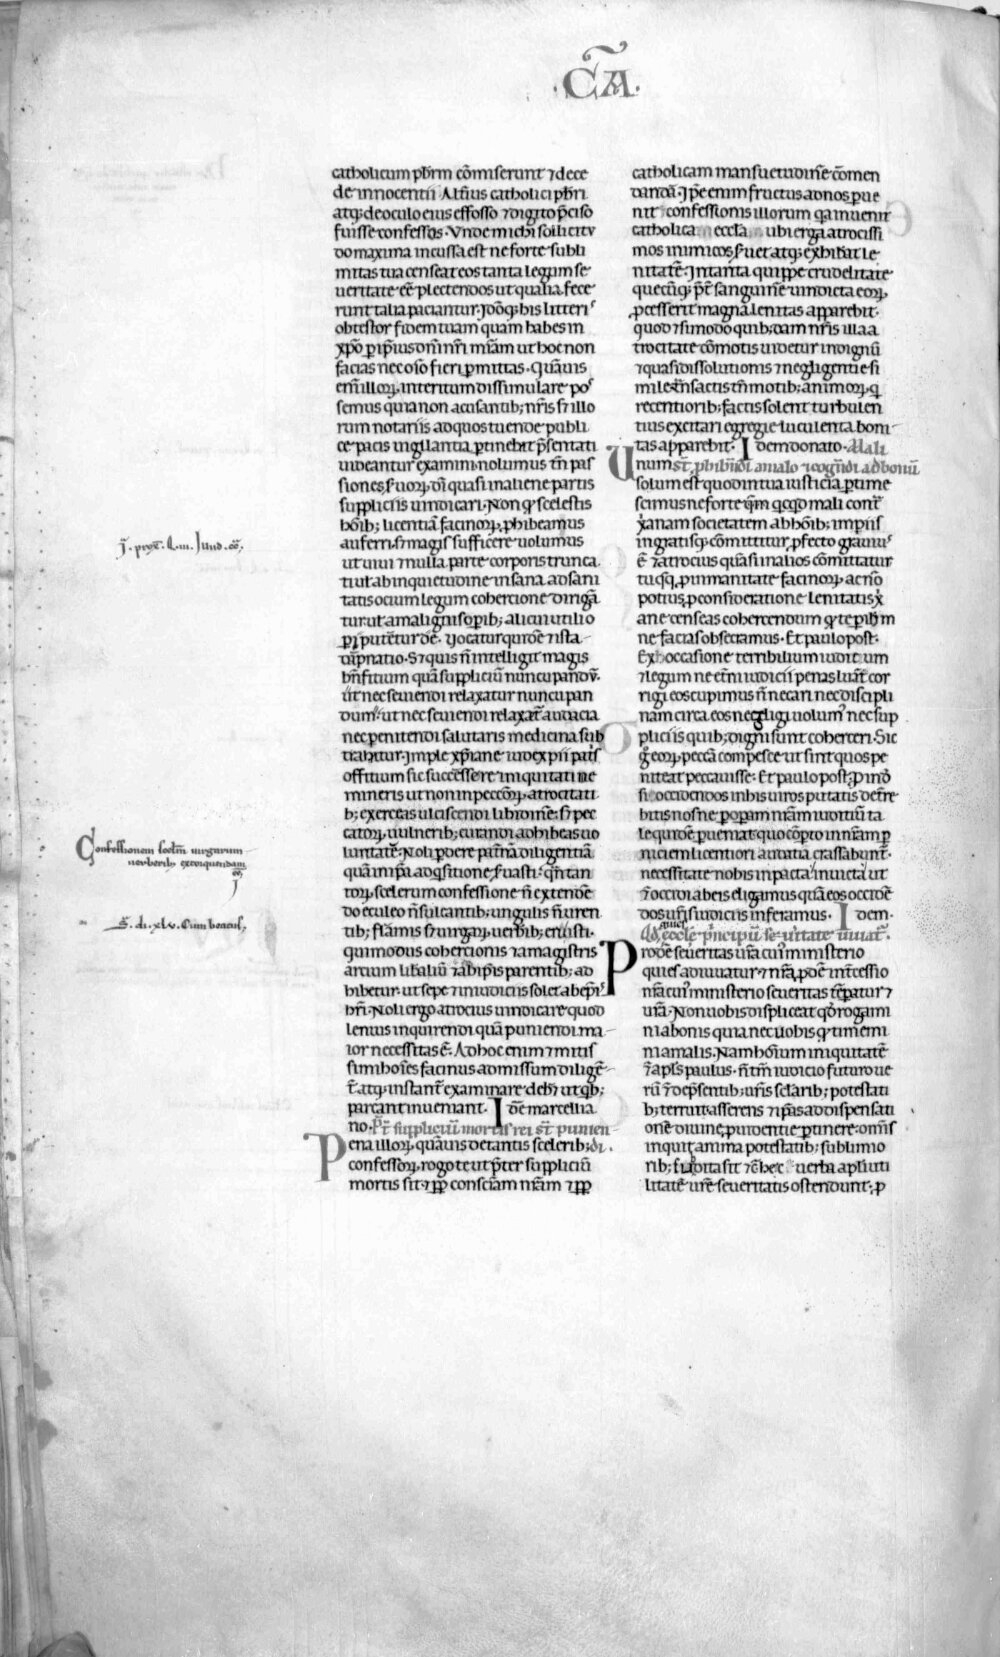 ·CA̅·
catholicum pb̅rm co̅miserunt ⁊ dece
de innocentii Alt̅ius catholici pb̅ri
atq; de oculo eius effosso ⁊ digito p̅ciso
fuisse confessos. Vnde michi sollicitu
do maxima incussa est ne forte subli
mitas tua censeat eos tanta legum se
ueritate ee̅ plectendos ut qualia fece
runt talia paciantur. Ido̅q; his litteris
obtestor fidem tuam quam habes in
xp̅o ꝑ ip̅ius dn̅i nr̅i mi̅am ut hoc non
facias nec o̅so̅ fieri ꝑmittas. Qua̅uis
eni̅ illoꝝ interitum dissimulare pos
semus quia non acusantib; nr̅is s; illo
rum notariis ad quos tuende publi
ce pacis uigilantia ꝑtinebat p̅sentati
uideantur examini. nolumus tn̅ pas
siones seruoꝝ di̅ quasi in aliene partis
suppliciis uindicari. Non q̇ scelestis
ho̅ib; licentia̅ facinoꝝ ꝓhibeamus
auferri. s; magis sufficere uolumus
ut uiui ⁊ nulla parte corporis trunca
ti ul̅ ab inquietudine insana ad sani
tatis ocium legum cohercione dirigan̅
tur. ut̅ a malignis oꝑib; alicui utilio
ꝑi putetur de̅. Vocatur quide̅ ⁊ ista
da̅pnatio. S; quis n̅ intelligit magis
bn̅fitium qua̅ suppliciu̅ nuncupandu̅.
ut nec seuiendi relaxatur nuncupan
dum. ut nec seuiendi relaxat̅ audacia
nec penitendi salutaris medicina sub
trahitur. Imple xp̅iane iudex pii patris
offitium sic successere iniquitati ne
mineris ut non in pecco̅rꝝ atrocitati
b; exerceas ulciscendi libidine̅. s; pec
catoꝝ uulnerib; curandi adhibeas uo
luntate̅. Noli ꝑdere pat̅na̅ diligentia̅
qua̅ in ip̅a adq̅sitione seruasti. qn̅ tan
toꝝ scelerum confessione n̅ extende̅
do eculeo n̅ sulcantib; ungulis n̅ uren
tib; fla̅mis s; uirgaꝝ uerb̅ib; eruisti.
qui modus cohercionis ⁊ a magistris
artium lib̅aliu̅ ⁊ ab ip̅is parentib; ad
hibetur. ut sepe ⁊ in iudiciis solet ab ep̅is
hr̅i. Noli ergo atrocius uindicare quod
lenius inquirendi qua̅ puniendi ma
ior necessitas e̅. Ad hoc enim ⁊ mitis
sim ho̅ies facinus admissum dilige̅
t̅ atq; instant̅ examinare deb̅t ut qb;
parcant inueniant. Ide̅ marcellia
no. P̅t̅ suppliciu̅ mortis rei su̅t punien
Pena illoꝝ qua̅uis de tantis sceleribus; di.
confessoꝝ rogo te ut p̅ter suppliciu̅
mortis sit ⁊ ꝓp̅ consciam nr̅am ⁊ ꝓp̅
catholicam mansuetudine̅ co̅men
danda̅. Ip̅e enim fructus ad nos ꝑue
nit confessionis illorum q̅a inuenit
catholica eccl̅a ubi erga atrocissi
mos inimicos seruet atq; exhibeat le
nitate̅. In tanta quippe crudelitate
quecu̅q; p̅t̅ sanguine̅ uindicta eoꝝ
ꝓcesserit magna lenitas apparebit.
quod ⁊ si modo quib;dam nr̅is illa a
trocitate co̅motis uidetur indignu̅
⁊ quasi dissolutionis ⁊ negligentie si
mile. tn̅ sactis tn̅ motib; animoꝝ q̅
recentiorib; factis solent turbulen
tius excitari egregie luculenta boni
tas apparebit. Idem donato. Mali
num su̅t ꝓhibe̅di a malo ⁊ cogendi ad bonu̅
Vsolum est quod in tua iusticia ꝑtime
scimus ne forte q̅m q̅cq̅d mali cont̅
xp̅ianam societatem ab ho̅ib; impiis
ingratisq; co̅mittitur ꝓfecto grauius
e̅ ⁊ atrocius qua̅ si in alios co̅mittatur
tu q̅sq; ꝓ inmanitate facinoꝝ ac no̅
potius ꝓ consideratione lenitatis xp̅i
ane censeas cohercendum q̇ te ꝑ ih̅m
ne facias obsecramus. Et paulo post.
Ex occasione terribilium iudicum
⁊ legum ne et̅ni iudicii penas lua̅t cor
rigi eos cupimus n̅ necari nec discipli
nam circa eos negligi uolumus nec sup
pliciis quib; digni sunt coherceri. Sic
g̊ eoꝝ pecca̅ compesce ut sint quos pe
niteat peccauisse. Et paulo post. ꝓinde
si occidendos in his uiros putatis det̅re
bitis nos ne ꝑ oꝑam nr̅am iuditiu̅ ta
le quide̅ ꝑueniat quo co̅ꝑto in nr̅am ꝑ
niciem licentiori autatia crassabunt̅.
necessitate nobis inpacta ⁊ iniuncta ut
⁊ occidi ab eis eligamus qua̅ eos occide̅
dos ur̅is iudiciis inferamus. Idem.
Qd̅ eccl̅e p̅ncipiu̅ seueritate iuuat̅.
Prode̅ seueritas ur̅a cuius ministerio
quies adiuuatur ⁊ nr̅a ꝓde̅ int̅cessio
nr̅a cuius ministerio seueritas te̅ꝑatur ⁊
ur̅a. Non uobis displiceat q̅d rogami
ni a bonis quia nec uobis q̇ timemi
ni a malis. Nam ho̅ium iniquitate̅
⁊ apl̅s paulus. n̅ tm̅ iudicio futuro ue
ru̅ ⁊ de p̅sentib; ur̅is sc̅larib; potestati
b; terruit asserens ⁊ ip̅as ad dispensati
one̅ diuine ꝓuidentie ꝑtinere. om̅is
inquit anima potestatib; sublimio
rib; subdita sit ⁊c̅. hec uerba apl̅i uti
litate̅ ur̅e seueritatis ostendunt. ꝓ
Confessionem sceler̅ uirgarum
uerberib; exorquendam
ee̅